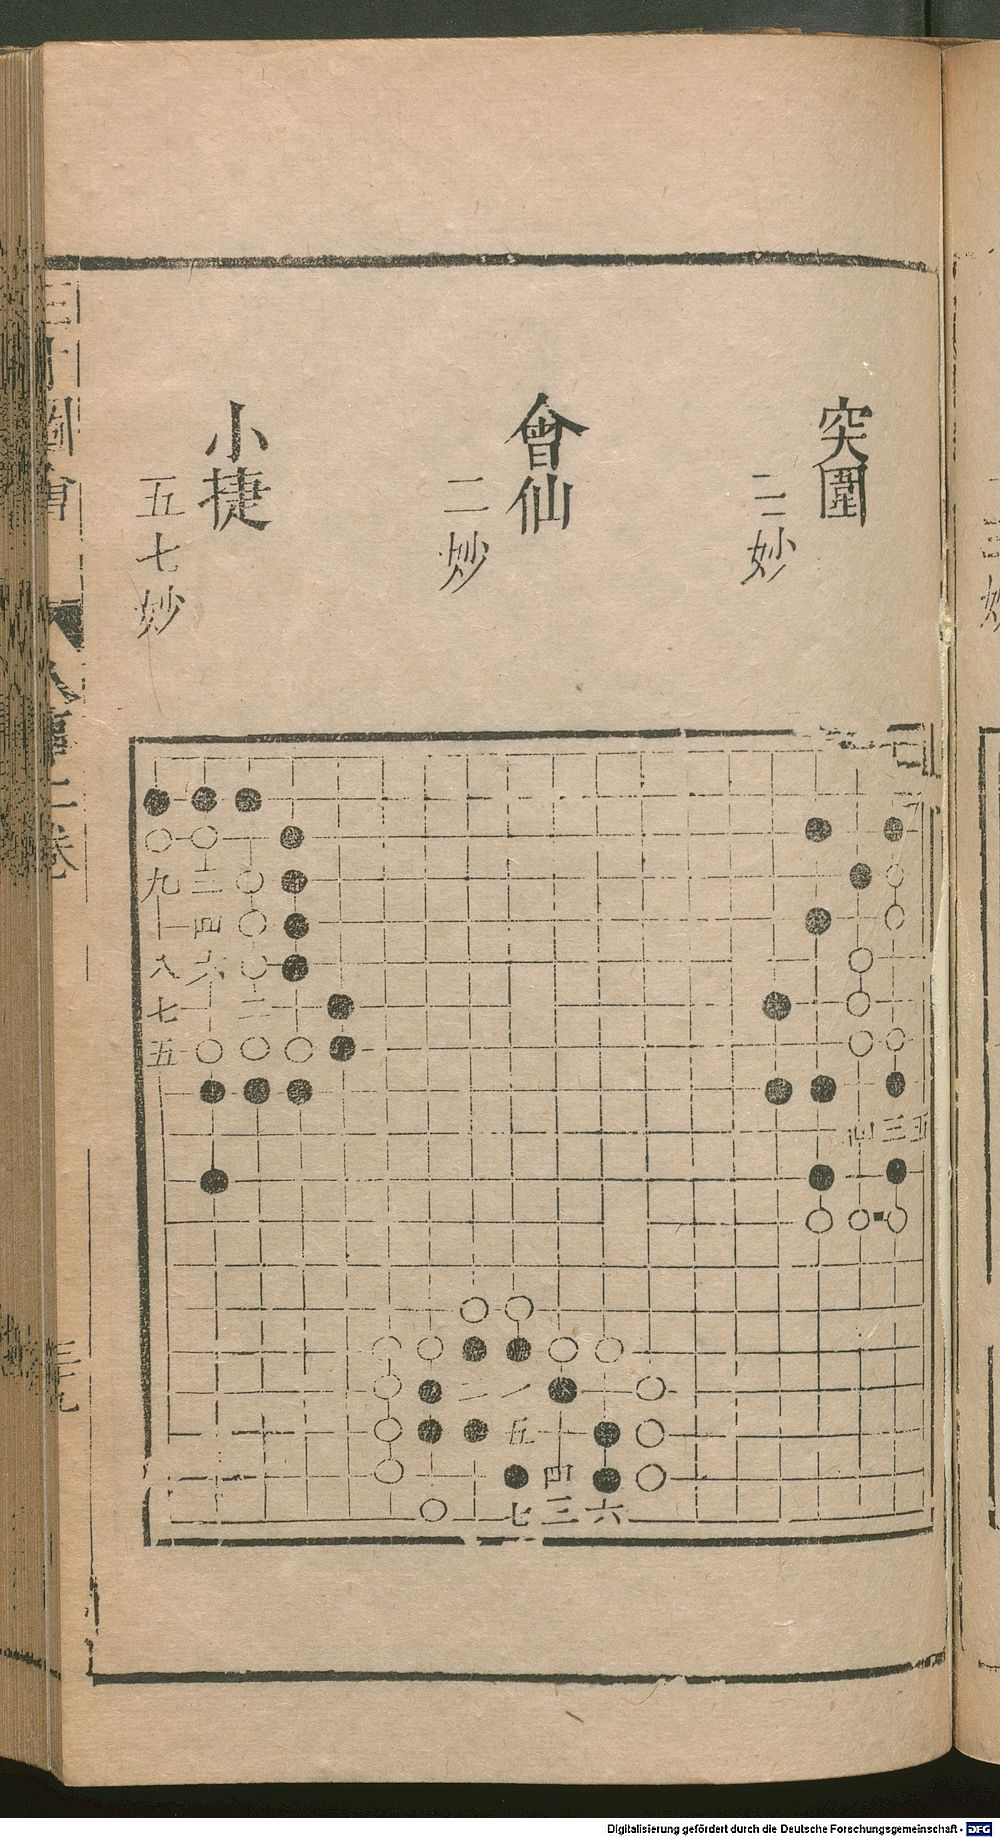 突圍
三妙
會仙
二妙
小捷
五七妙
九 三
一 四
八 六
七 二
五
四 三 五
二 一
五
四
七 三 六
三才圖會
人事二卷
三十九
Digitalisierung gefördert durch die Deutsche Forschungsgemeinschaft - DFG